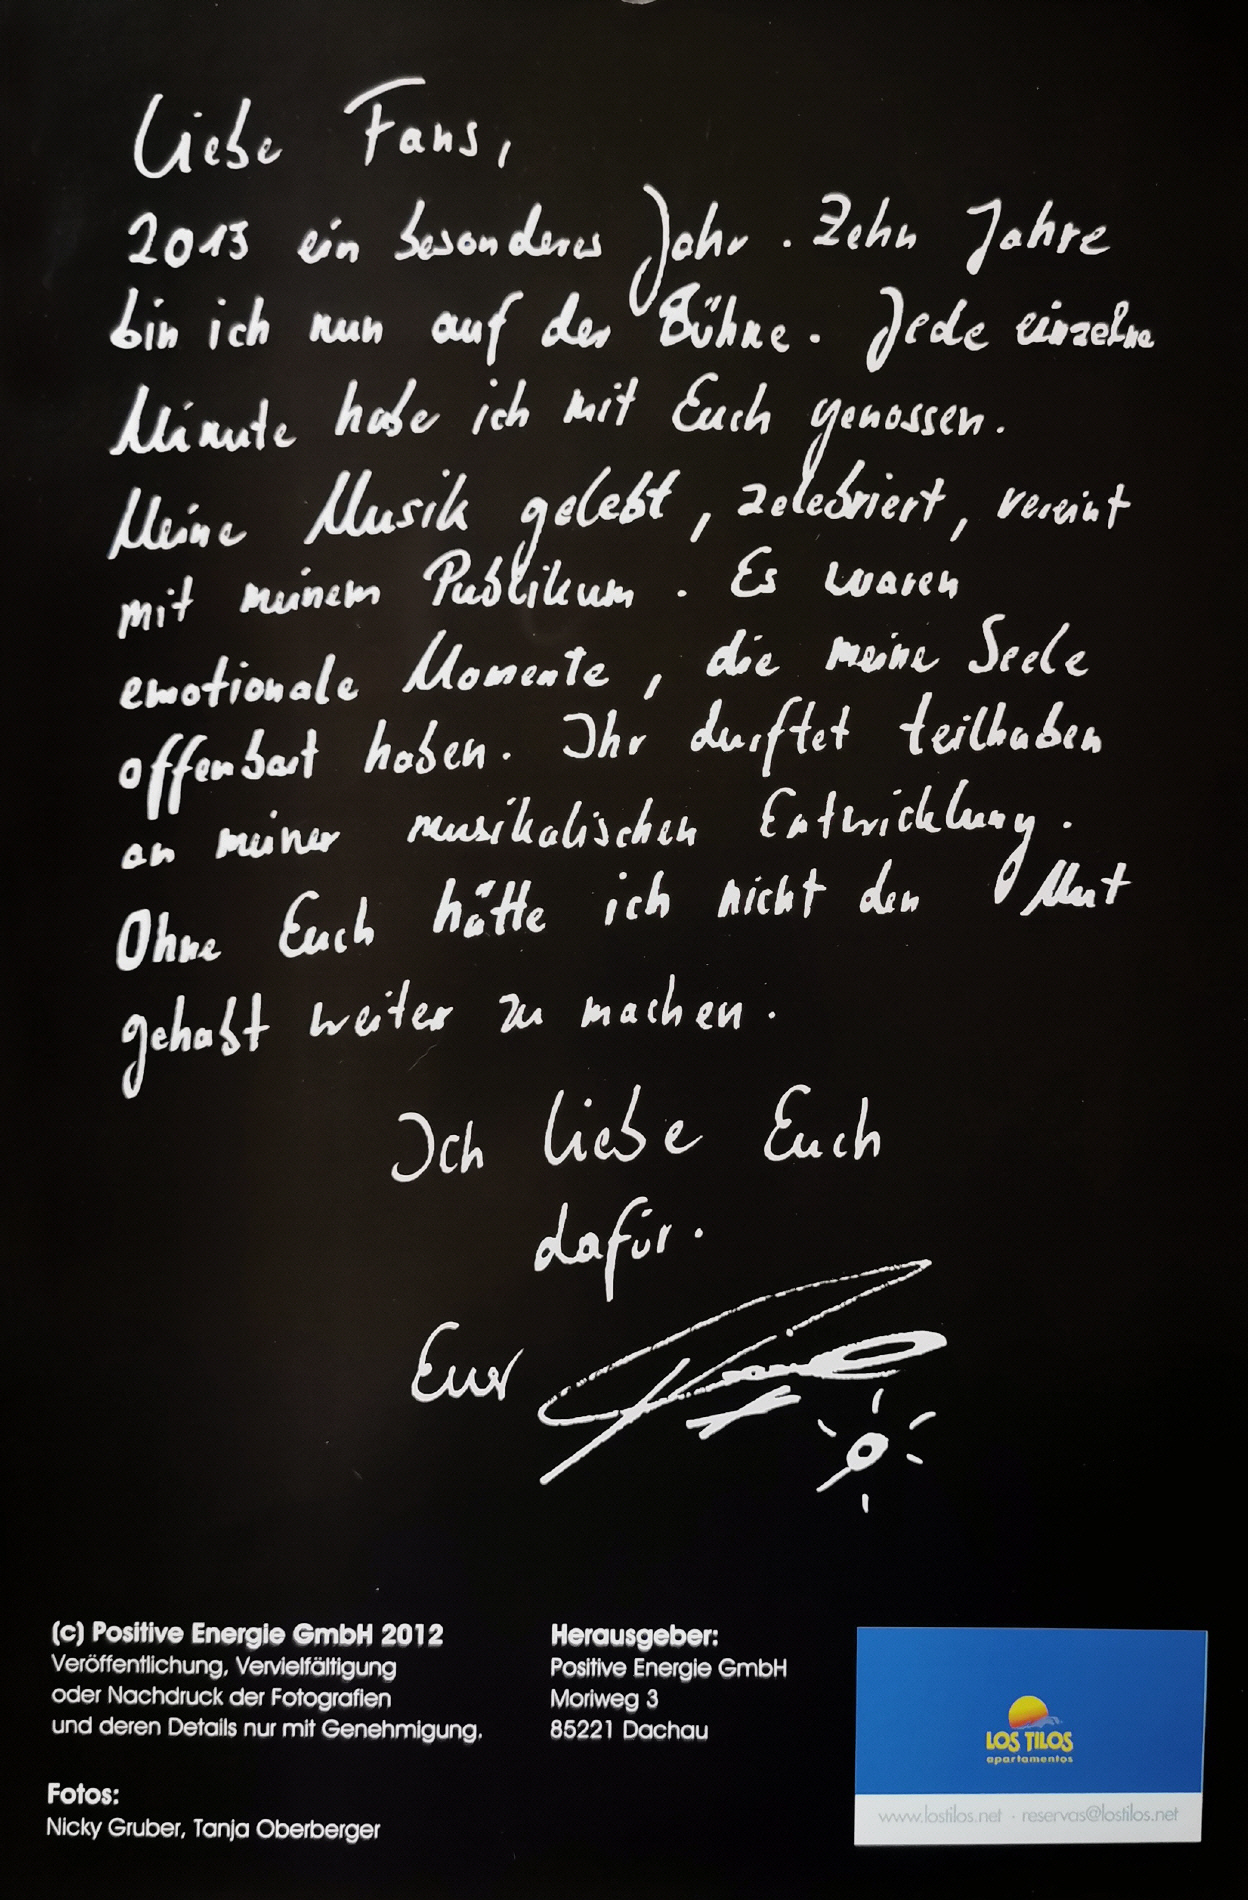 Liebe Fans,
2013 ein besonderes Jahr. Zehn Jahre
bin ich nun auf der Bühne. Jede einzelne
Minute habe ich mit Euch genossen.
Meine Musik gelebt, zelebriert, vereint
mit meinem Publikum. Es waren
emotionale Momente, die meine Seele
offenbart haben. Ihr durftet teilhaben
an meiner musikalischen Entwicklung.
Ohne Euch hätte ich nicht den Mut
gehabt weiter zu machen.
Ich liebe Euch
dafür.
Euer
(c) Positive Energie GmbH 2012
Veröffentlichung, Vervielfältigung
oder Nachdruck der Fotografien
und deren Details nur mit Genehmigung.
Fotos:
Nicky Gruber, Tanja Oberberger
Herausgeber:
Positive Energie GmbH
Moriweg 3
85221 Dachau
LOS TILOS
apartamentos
www.lostilos.net · reservas@lostilos.net